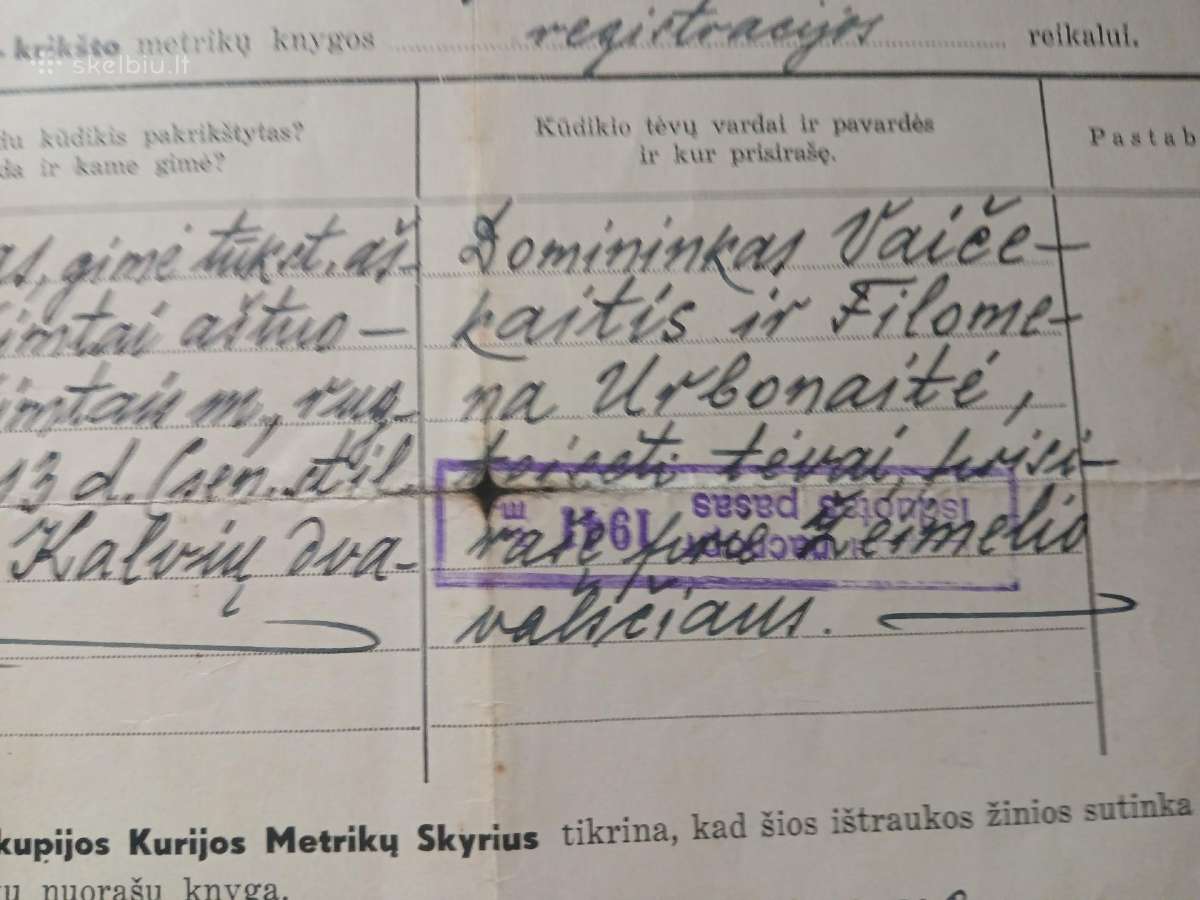 krikšto metrikų knygos registracijos reikalui.
skelbiu.lt
kūdikis pakrikštytas?
ir kame gimė?
Kūdikio tėvų vardai ir pavardės
ir kur prisirašę.
Pastab
gimė tūkst. aš-
imtai aštuo-
m, rug-
13 d. (sen. stil.
Kalvių dva-
Domininkas Vaiče-
kaitis ir Filome-
na Urbonaitė,
teisėti tėvai, prisi-
rašę prie Žeimelio
valsčiaus.
išduotas pasas
1941 m
kupijos Kurijos Metrikų Skyrius tikrina, kad šios ištraukos žinios sutinka
nuorašų knyga.